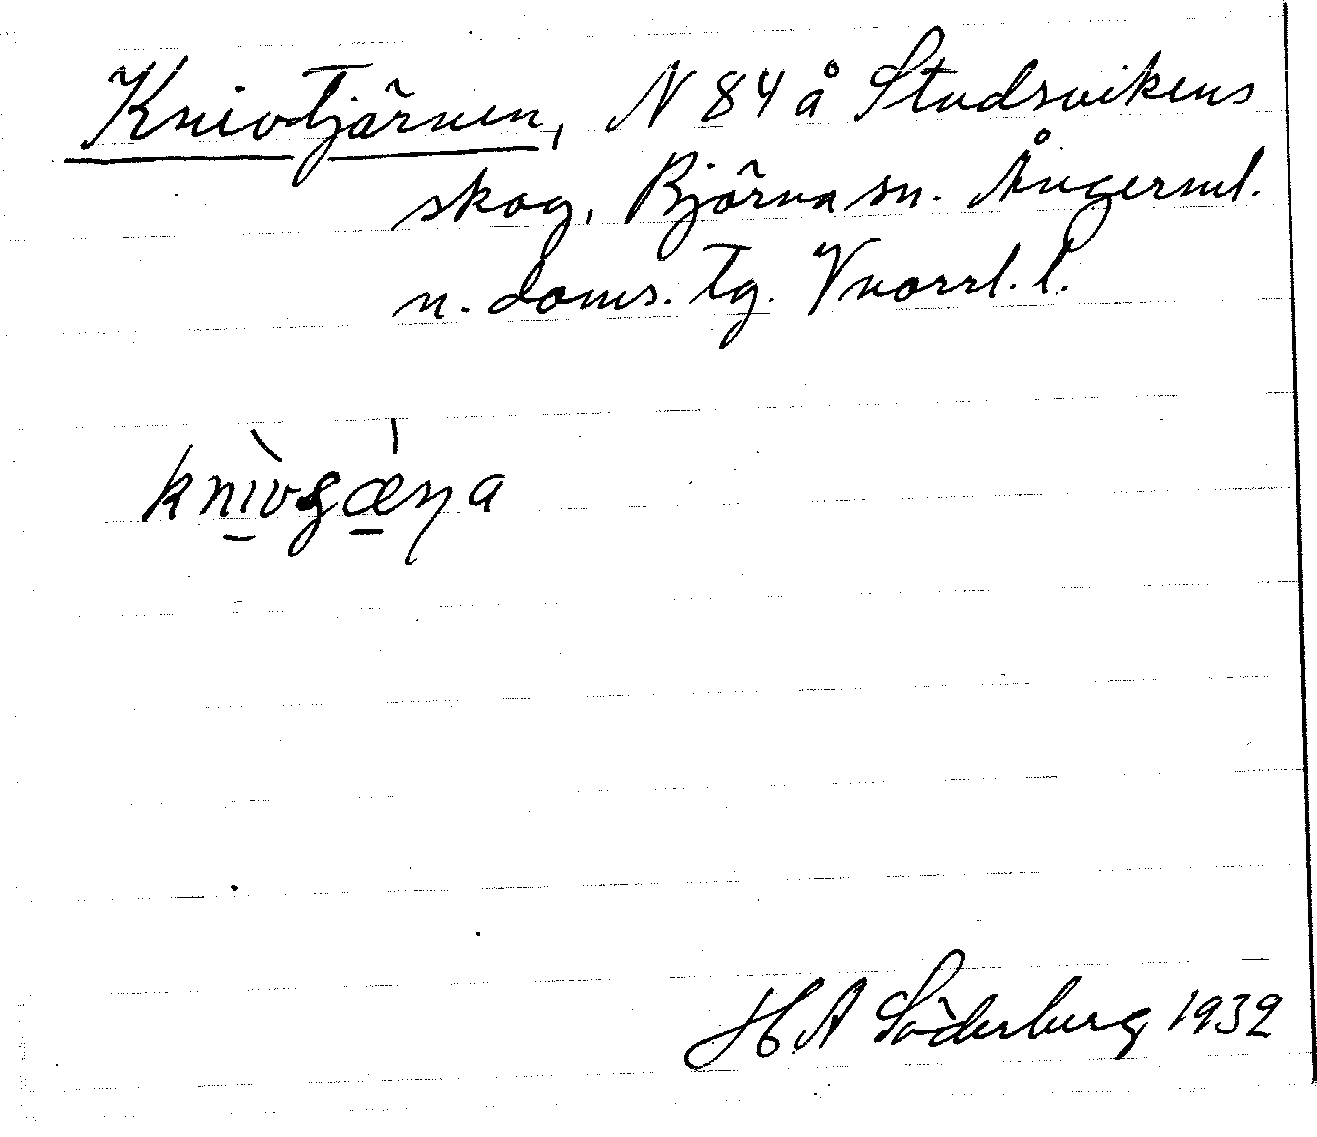 Knivtjärnen, N 84 å Studsvikens
skog, Björna sn. Ångerml.
n. doms. tg. Vnorrl. l.
knìvgǽņa
H A Söderberg 1932